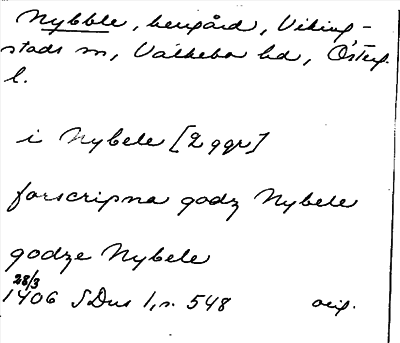 Nybble, bengård, Viking-
stads sn, Valkebo hd, Österg.
l.
i Nybele [2 ggr]
forscripna godz Nybele
godze Nybele
28/3
1406 SDns 1, s. 548 orig.